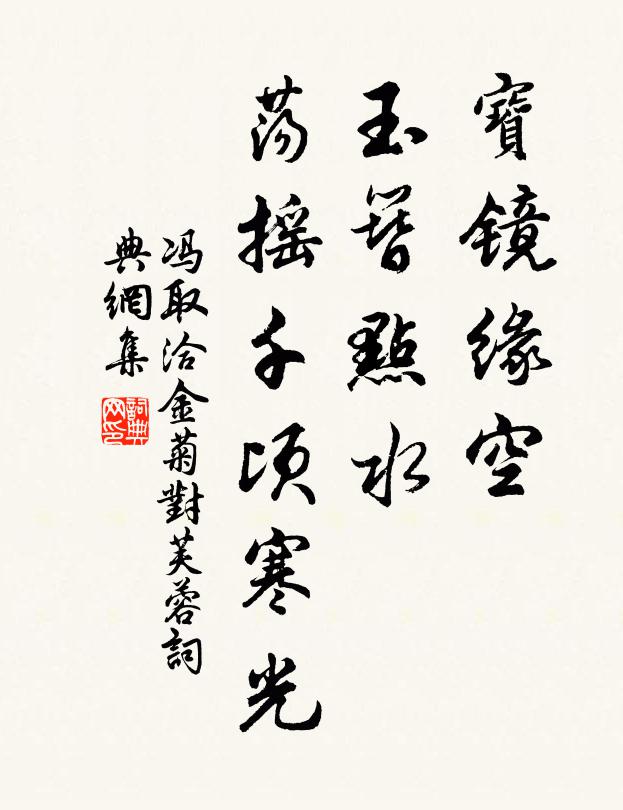 寶鏡緣空
玉簪點水
蕩摇千頃寒光
冯取洽金菊對芙蓉詞
典網集
詞典网印